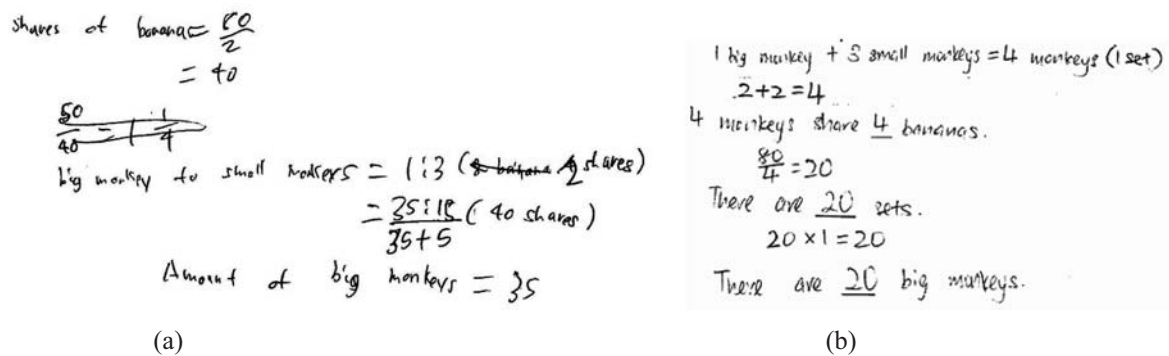 shares of banana = 80/2
= 40
50/40 = 1 1/4
big monkey to small monkeys = 1:3 (2 shares)
= 35:15 (40 shares)
35+5
Amount of big monkeys = 35
(a)
1 big monkey + 3 small monkeys = 4 monkeys (1 set)
2+2=4
4 monkeys share 4 bananas.
80/4 = 20
There are 20 sets.
20 × 1 = 20
There are 20 big monkeys.
(b)